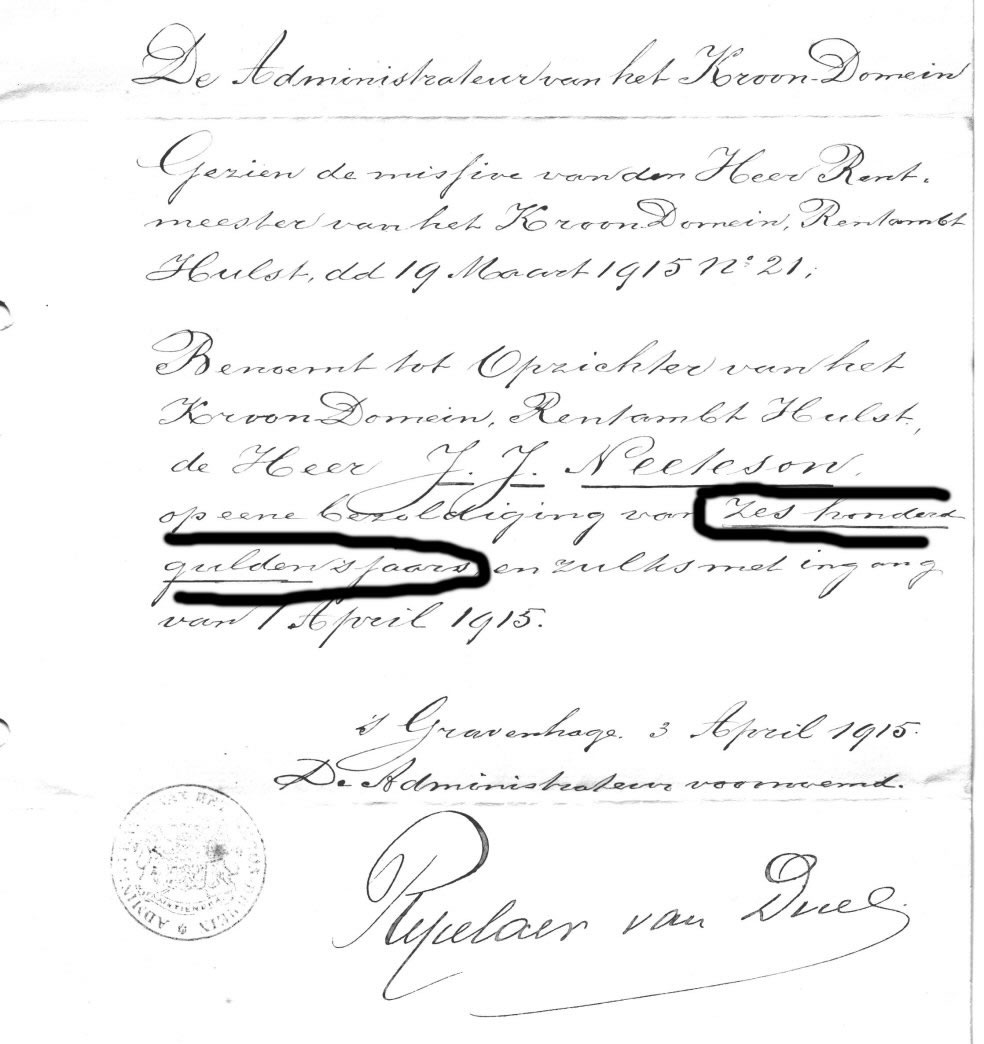 De Administrateur van het Kroon-Domein
Gezien de missive van den Heer Rent-
meester van het Kroon-Domein, Rentambt
Hulst, dd 19 Maart 1915 No. 21;
Benoemt tot Opzichter van het
Kroon-Domein, Rentambt Hulst,
de Heer J. J. Neeteson,
op eene bezoldiging van zes honderd
gulden 's jaars en zulks met ingang
van 1 April 1915.
's Gravenhage. 3 April 1915.
De Administrateur voornoemd.
Repelaer van Driel